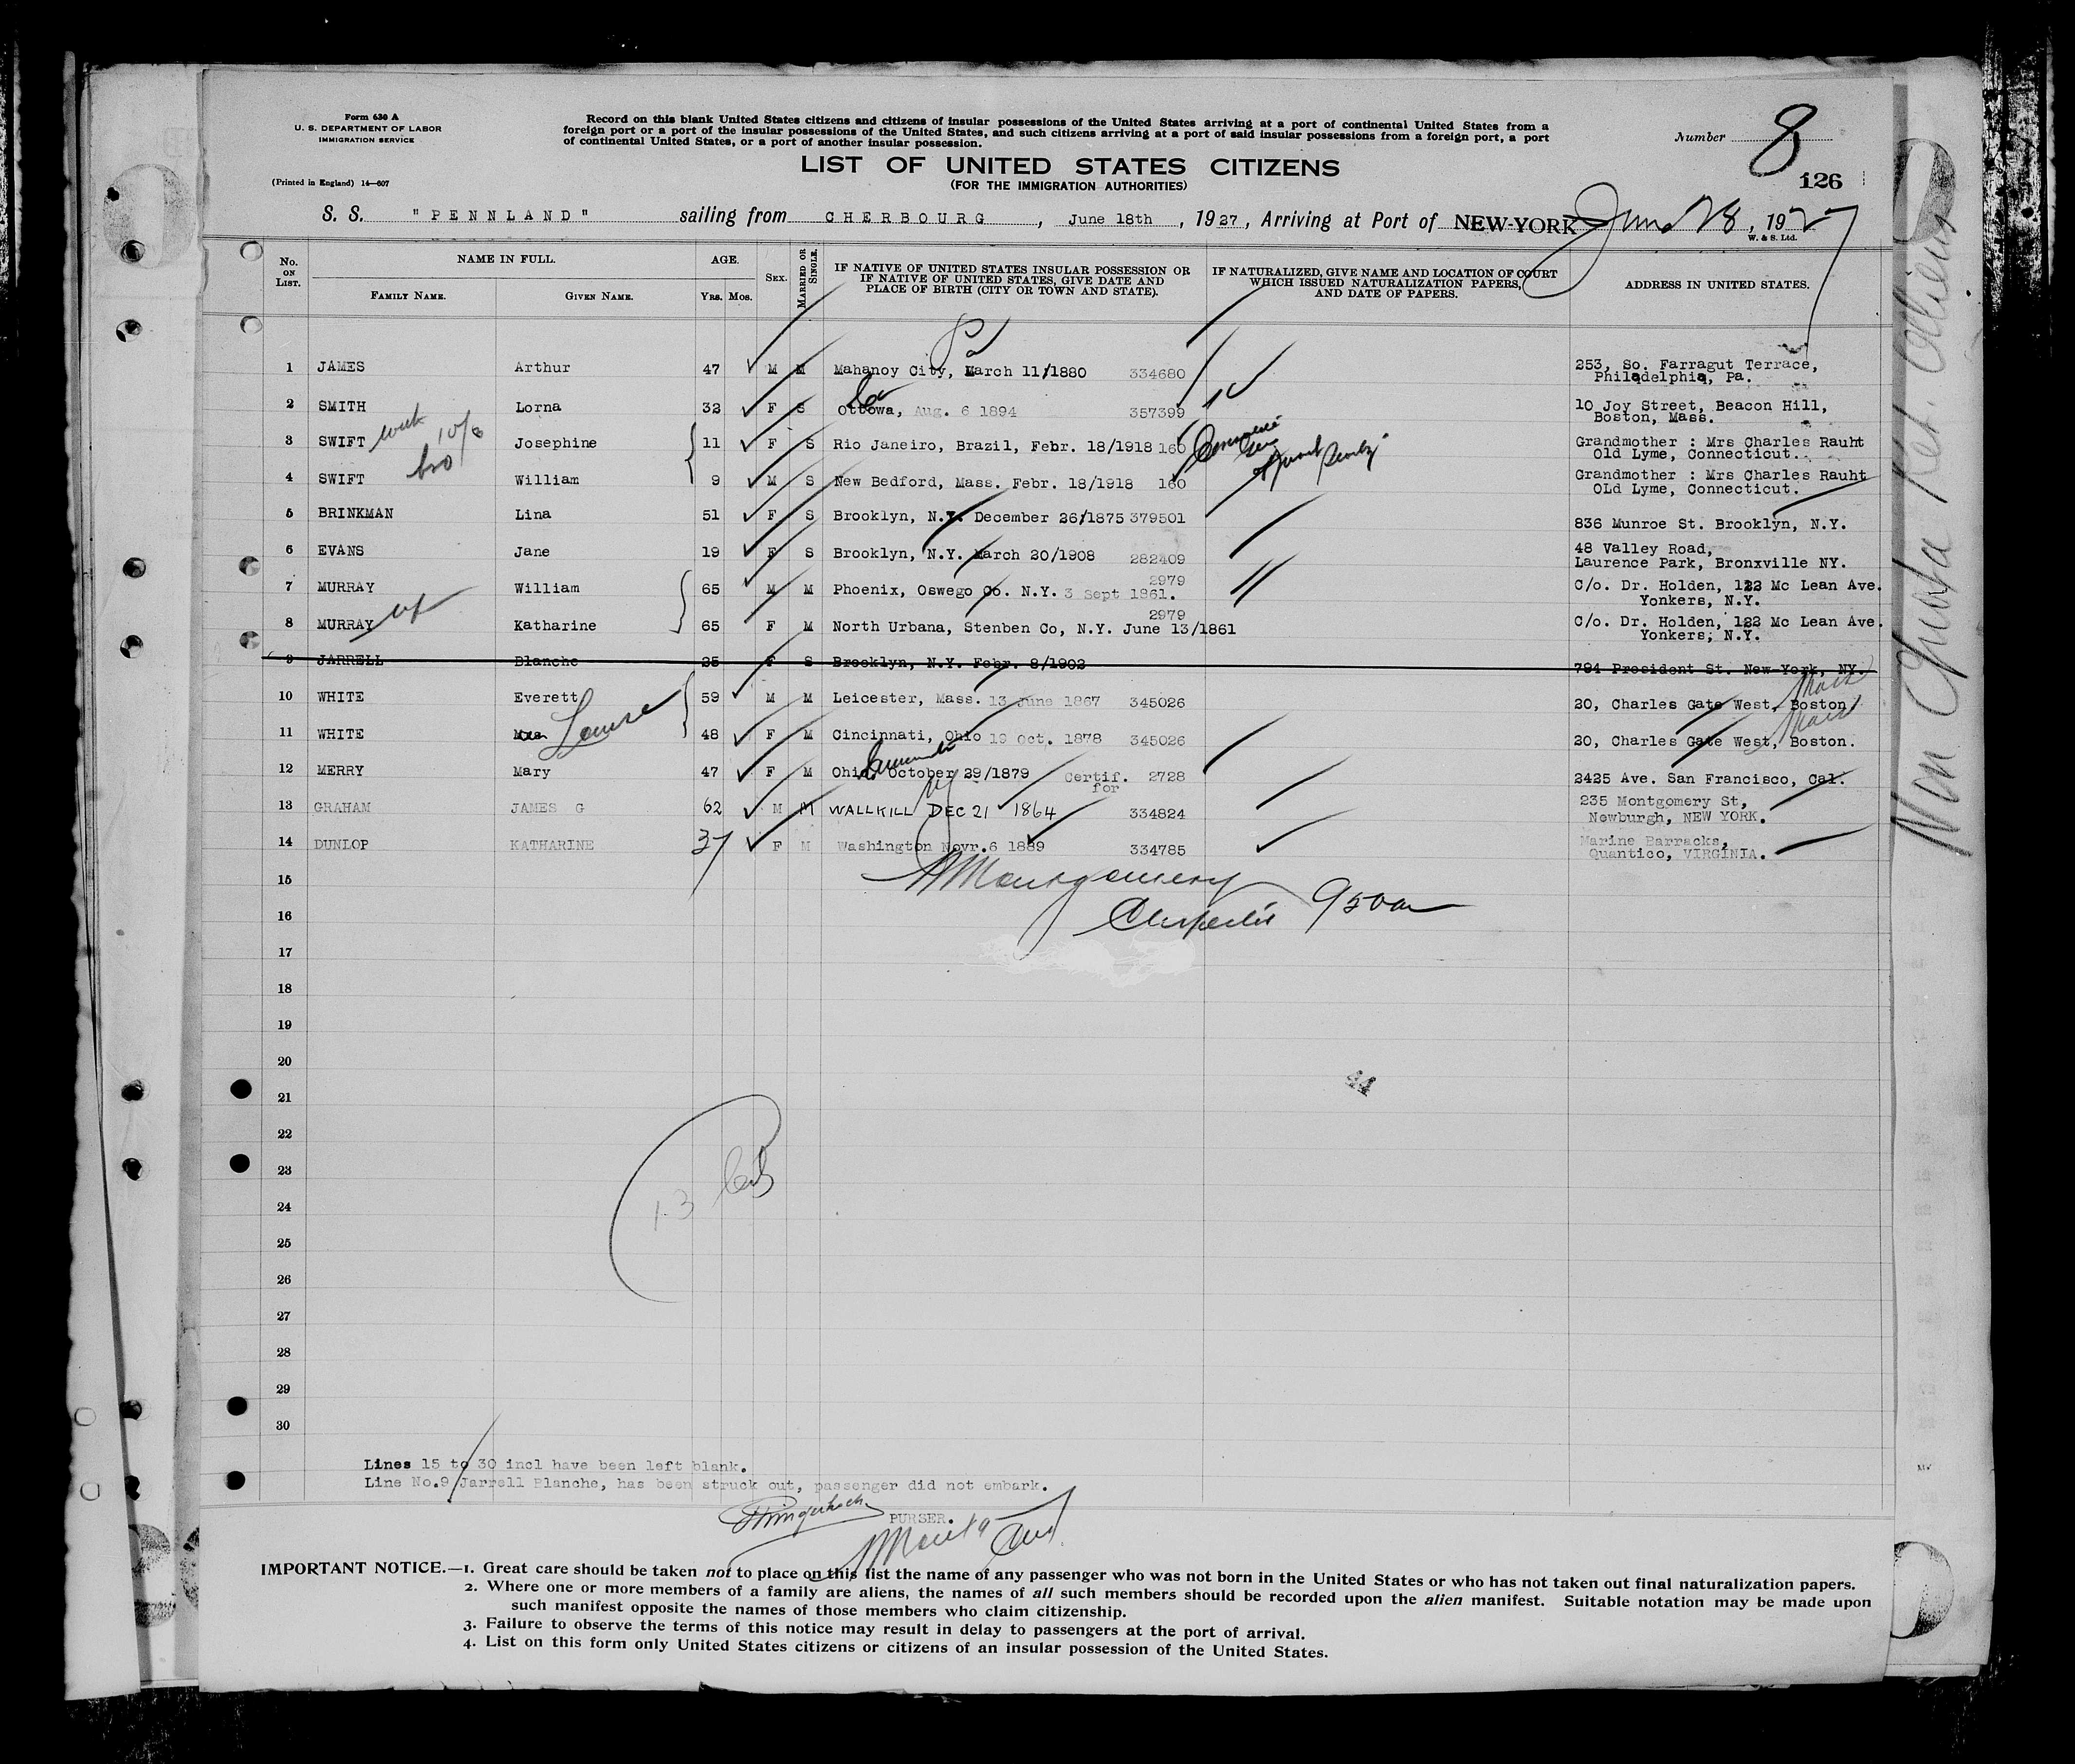 Form 630 A
U. S. DEPARTMENT OF LABOR
IMMIGRATION SERVICE
(Printed in England) 14—607
Record on this blank United States citizens and citizens of insular possessions of the United States arriving at a port of continental United States from a
foreign port or a port of the insular possessions of the United States, and such citizens arriving at a port of said insular possessions from a foreign port, a port
of continental United States, or a port of another insular possession.
Number 8
126
LIST OF UNITED STATES CITIZENS
(FOR THE IMMIGRATION AUTHORITIES)
S. S. "PENNLAND" sailing from CHERBOURG, June 18th, 1927, Arriving at Port of NEW-YORK June 28, 1927
W. & S. Ltd.
No. ON LIST. NAME IN FULL. AGE. SEX. MARRIED OR SINGLE. IF NATIVE OF UNITED STATES INSULAR POSSESSION OR IF NATIVE OF UNITED STATES, GIVE DATE AND PLACE OF BIRTH (CITY OR TOWN AND STATE). IF NATURALIZED, GIVE NAME AND LOCATION OF COURT WHICH ISSUED NATURALIZATION PAPERS, AND DATE OF PAPERS. ADDRESS IN UNITED STATES.
FAMILY NAME. GIVEN NAME. Yrs. Mos.
Pa
1 JAMES Arthur 47 M M Mahanoy City, March 11/1880 334680 253, So. Farragut Terrace,
Philadelphia, Pa.
2 SMITH Lorna 32 F S Ottowa, Aug. 6 1894 357399 10 Joy Street, Beacon Hill,
Boston, Mass.
3 SWIFT Josephine 11 F S Rio Janeiro, Brazil, Febr. 18/1918 160 Grandmother : Mrs Charles Rauht
Old Lyme, Connecticut.
bro
4 SWIFT William 9 M S New Bedford, Mass. Febr. 18/1918 160 Grandmother : Mrs Charles Rauht
OLd Lyme, Connecticut.
5 BRINKMAN Lina 51 F S Brooklyn, N.Y. December 26/1875 379501 836 Munroe St. Brooklyn, N.Y.
6 EVANS Jane 19 F S Brooklyn, N.Y. March 20/1908 282409 48 Valley Road,
Laurence Park, Bronxville NY.
7 MURRAY William 65 M M Phoenix, Oswego Co. N.Y. 3 Sept 1861. 2979 C/o. Dr. Holden, 122 Mc Lean Ave.
Yonkers, N.Y.
8 MURRAY Katharine 65 F M North Urbana, Stenben Co, N.Y. June 13/1861 2979 C/o. Dr. Holden, 122 Mc Lean Ave.
Yonkers; N.Y.
9 JARRELL Blanche 25 F S Brooklyn, N.Y. Febr. 8/1902 794 President St. New-York, NY.
10 WHITE Everett 59 M M Leicester, Mass. 13 June 1867 345026 20, Charles Gate West, Boston Mass
11 WHITE Mrs Louise 48 F M Cincinnati, Ohio 19 Oct. 1878 345026 20, Charles Gate West, Boston. Mass
12 MERRY Mary 47 F M Ohio, October 29/1879 Certif. 2728 2425 Ave. San Francisco, Cal.
for
13 GRAHAM JAMES G 62 M M WALLKILL NY DEC 21 1864 334824 235 Montgomery St,
Newburgh, NEW YORK.
14 DUNLOP KATHARINE 37 F M Washington Novr.6 1889 334785 Marine Barracks,
Quantico, VIRGINIA.
15
16
17
18
19
20
21
22
23
24
25
26
27
28
29
30
Montgomery
950am
44
13
Lines 15 to 30 incl have been left blank.
Line No.9 Jarrell Blanche, has been struck out, passenger did not embark.
PURSER.
IMPORTANT NOTICE.—1. Great care should be taken not to place on this list the name of any passenger who was not born in the United States or who has not taken out final naturalization papers.
2. Where one or more members of a family are aliens, the names of all such members should be recorded upon the alien manifest. Suitable notation may be made upon
such manifest opposite the names of those members who claim citizenship.
3. Failure to observe the terms of this notice may result in delay to passengers at the port of arrival.
4. List on this form only United States citizens or citizens of an insular possession of the United States.
Non Quota Ret. Aliens